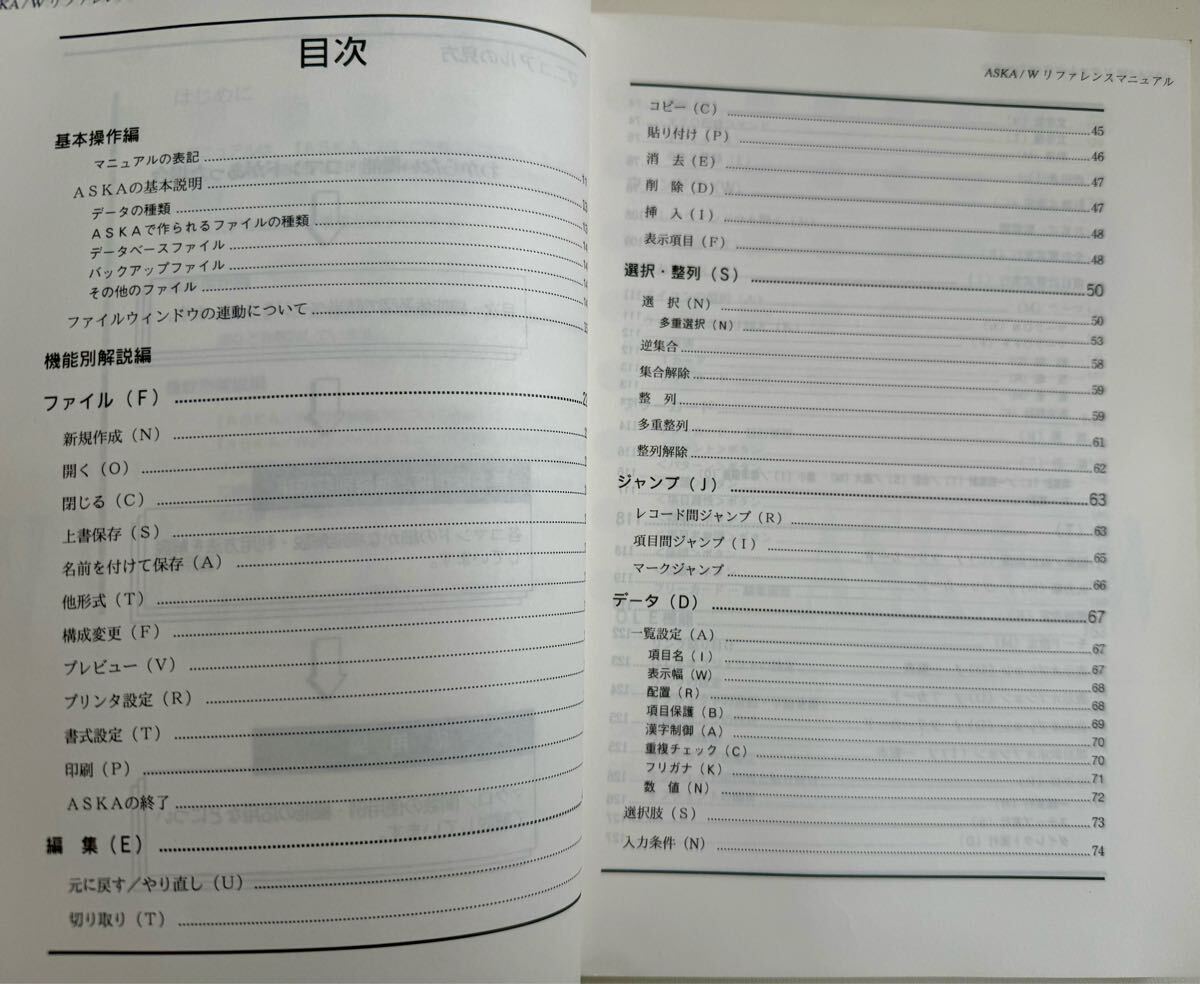 目次
基本操作編
マニュアルの表記
ASKAの基本説明
データの種類
ASKAで作られるファイルの種類
データベースファイル
バックアップファイル
その他のファイル
ファイルウィンドウの連動について
機能別解説編
ファイル(F)
新規作成(N)
開く(O)
閉じる(C)
上書保存(S)
名前を付けて保存(A)
他形式(T)
構成変更(F)
プレビュー(V)
プリンタ設定(R)
書式設定(T)
印刷(P)
ASKAの終了
編 集(E)
元に戻す/やり直し(U)
切り取り(T)
ASKA/W リファレンスマニュアル
コピー(C) 45
貼り付け(P) 46
消 去(E) 47
削 除(D) 47
挿 入(I) 48
表示項目(F) 48
選択・整列(S) 50
選 択(N) 50
多重選択(N) 53
逆集合 58
集合解除 59
整 列 59
多重整列 61
整列解除 62
ジャンプ(J) 63
レコード間ジャンプ(R) 63
項目間ジャンプ(I) 65
マークジャンプ 66
データ(D) 67
一覧設定(A) 67
項目名(I) 67
表示幅(W) 68
配置(R) 68
項目保護(B) 69
漢字制御(A) 70
重複チェック(C) 70
フリガナ(K) 71
数 値(N) 72
選択肢(S) 73
入力条件(N) 74